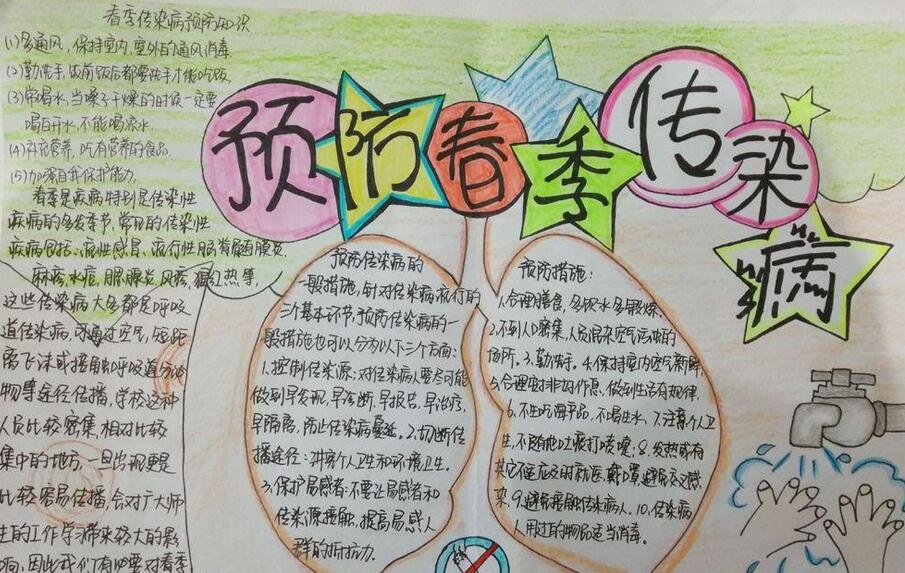 春季传染病预防知识
(1)多通风,保持室内,室外的通风消毒
(2)勤洗手,饭前饭后都要洗手才能吃饭
(3)常喝水,当嗓子干燥的时候一定要
喝白开水,不能喝凉水.
(4)补充营养,吃有营养的食品.
(5)加强自我保护能力.
春季是疾病特别是传染性
疾病的多发季节,常见的传染性
疾病包括:流性感冒、流行性脑脊髓膜炎.
麻疹,水痘,腮腺炎,风疹,猩红热等,
这些传染病大多都是呼吸
道传染病,可通过空气,短距
离飞沫或接触呼吸道分泌
物等途径传播,学校这种
人员比较密集,相对比较
集中的地方,一旦出现更是
比较容易传播,会对广大师
生的工作学习带来较大的影
响,因此我们有必要对春季
预防春季传染病
预防传染病的
一般措施,针对传染病流行的
三个基本环节,预防传染病的一
般措施也可以分为以下三个方面:
1.控制传染源:对传染病人要尽可能
做到早发现,早诊断,早报告,早治疗,
早隔离,防止传染病蔓延.2.切断传
播途径:讲究个人卫生和环境卫生.
3.保护易感者:不要让易感者和
传染源接触,提高易感人
群的抵抗力.
预防措施:
1.合理膳食,多饮水多锻炼.
2.不到人口密集,人员混杂空气污浊的
场所.3.勤洗手.4.保持室内空气新鲜
5.合理安排非的作息,做到生活有规律.
6.不生吃海产品,不喝生水,7.注意个人卫
生,不随地吐痰打喷嚏;8.发热或有
其它不适应及时就医,戴口罩避免交叉感
染,9.避免接触传染病人.10.传染病
人用过的物品适当消毒.